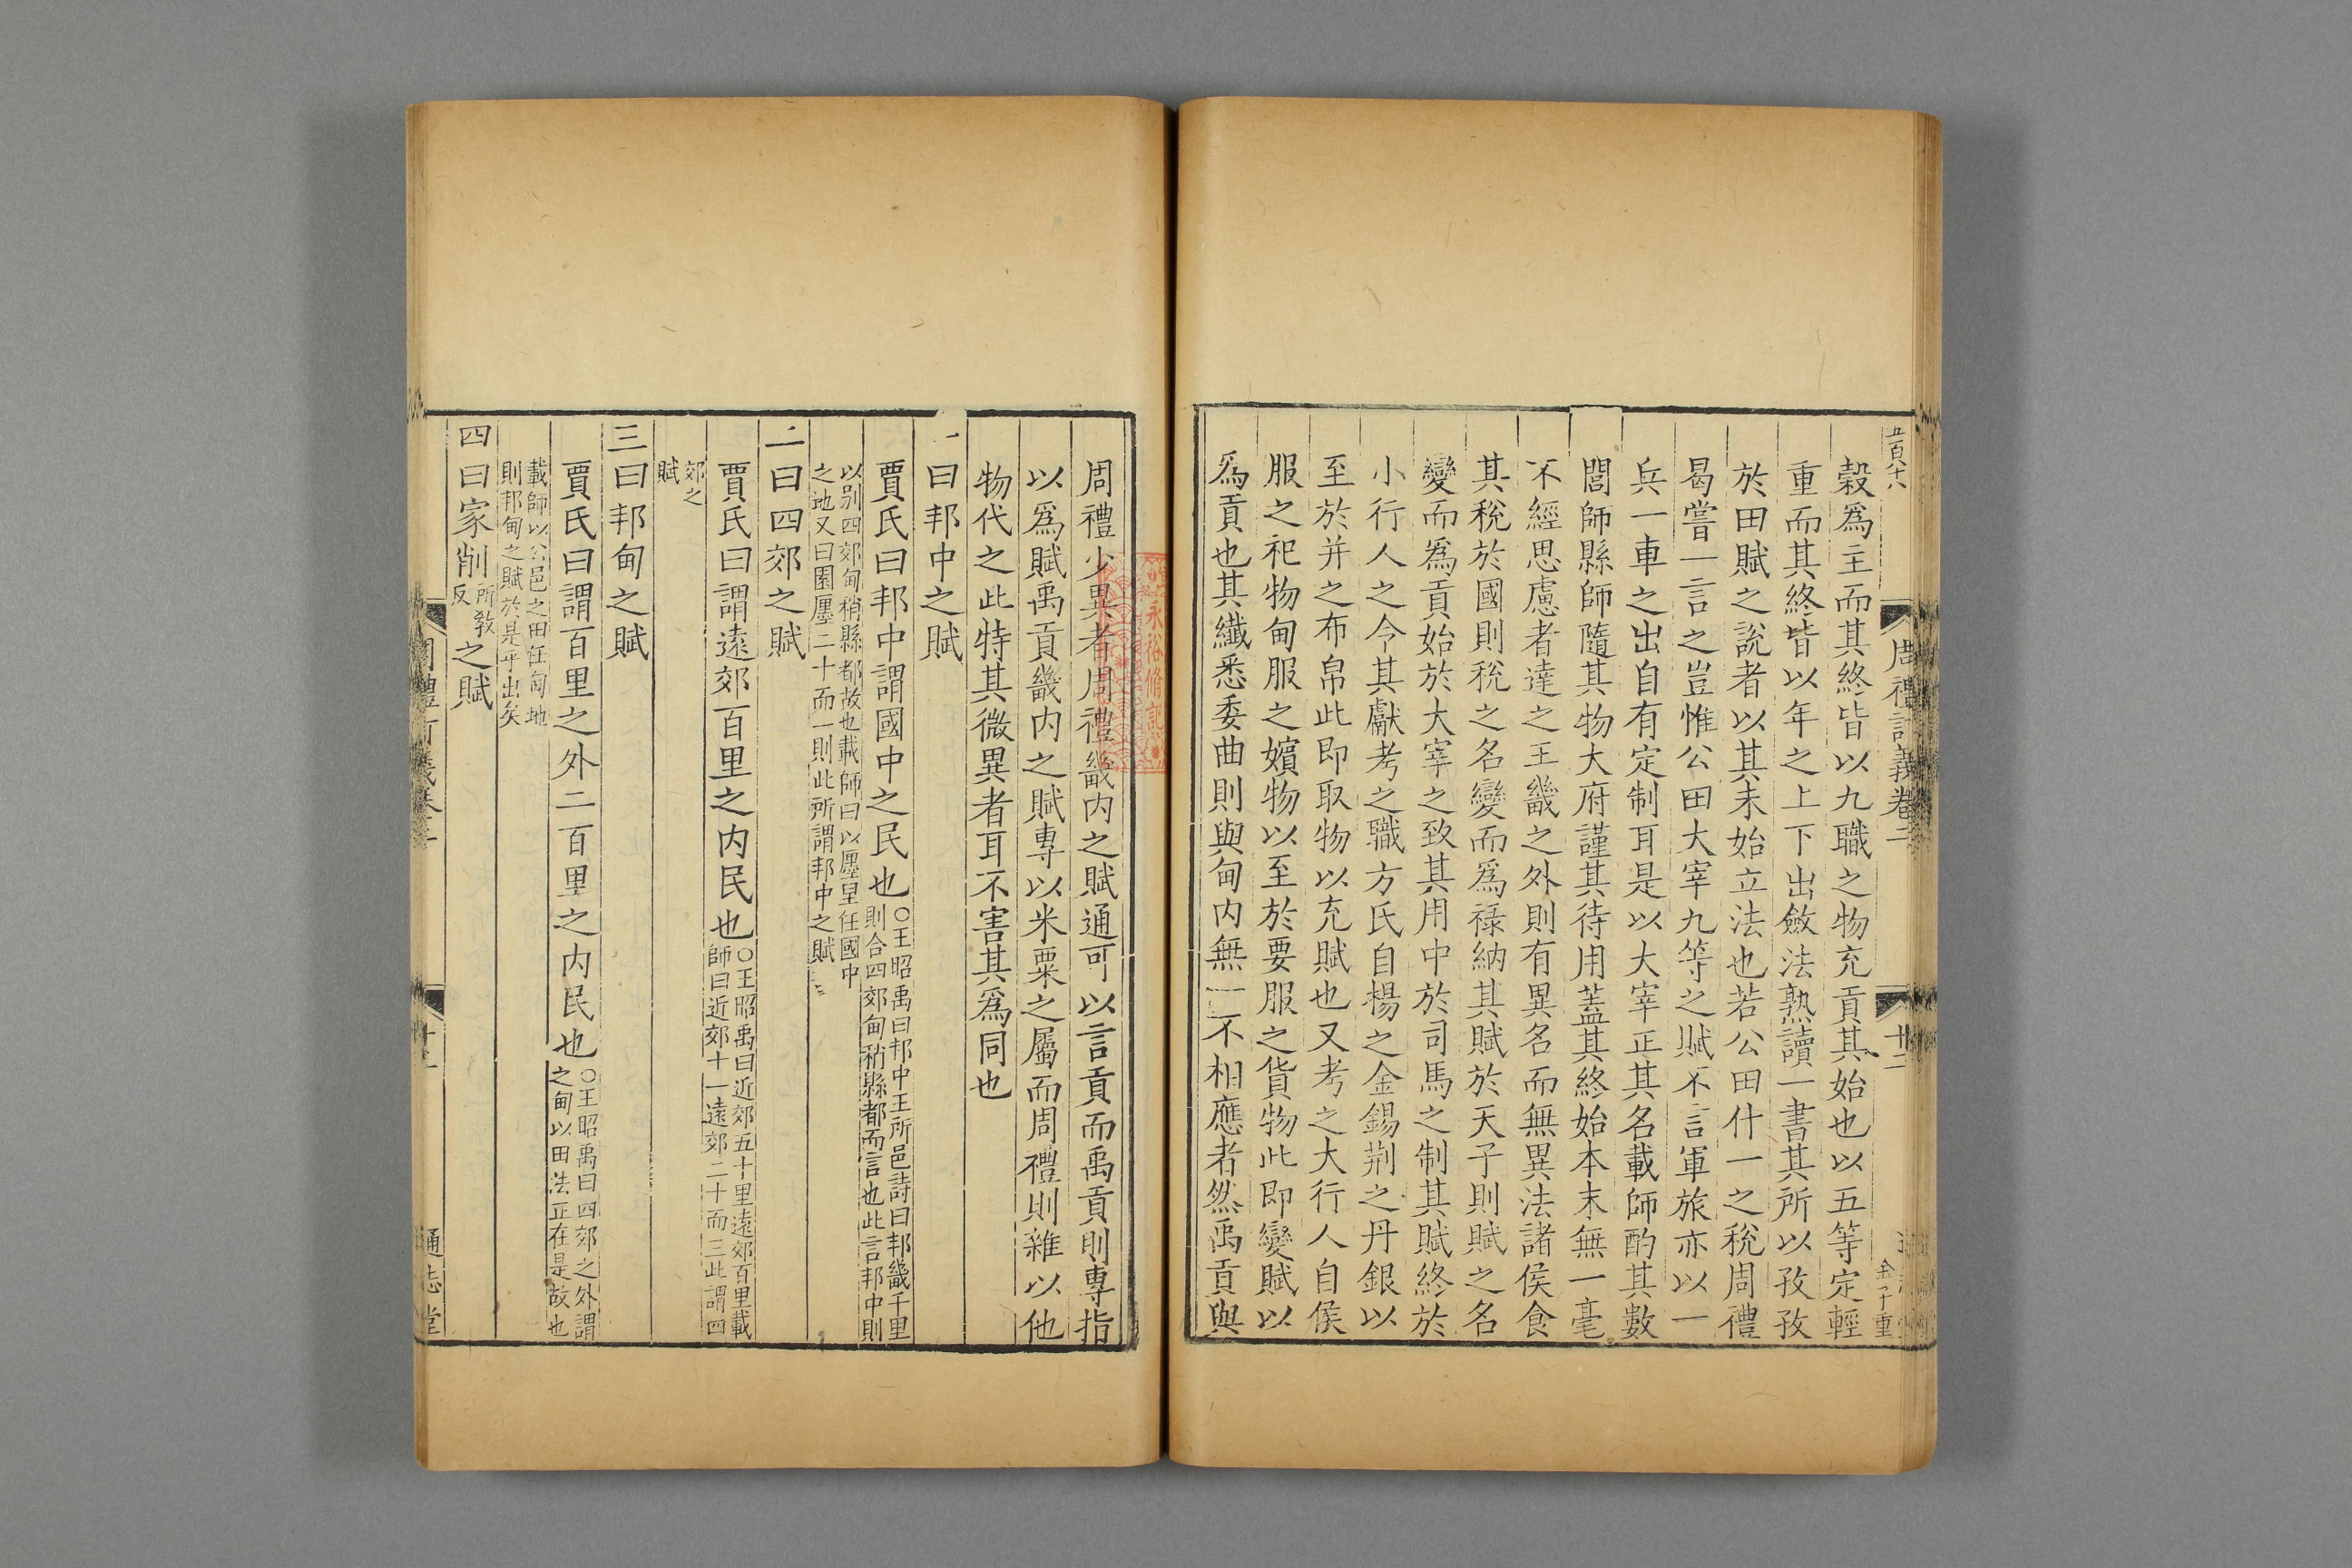 五百八十八
周禮訂義卷二
廿二
金子重
穀爲主而其終皆以九職之物充貢其始也以五等定輕
重而其終皆以年之上下出斂法熟讀一書其所以孜孜
於田賦之說者以其未始立法也若公田什一之稅周禮
曷嘗一言之豈惟公田大宰九等之賦不言軍旅亦以一
兵一車之出自有定制耳是以大宰正其名載師酌其數
閭師縣師隨其物大府謹其待用蓋其終始本末無一毫
不經思慮者達之王畿之外則有異名而無異法諸侯食
其稅於國則稅之名變而爲祿納其賦於天子則賦之名
變而爲貢始於大宰之致其用中於司馬之制其賦終於
小行人之令其獻考之職方氏自楊之金錫荆之丹銀以
至於并之布帛此即取物以充賦也又考之大行人自侯
服之祀物甸服之嬪物以至於要服之貨物此即變賦以
爲貢也其纖悉委曲則與甸内無一不相應者然禹貢與
周禮少異者周禮畿内之賦通可以言貢而禹貢則專指
以爲賦禹貢畿内之賦專以米粟之屬而周禮則雜以他
物代之此特其微異者耳不害其爲同也
一曰邦中之賦
賈氏曰邦中謂國中之民也○王昭禹曰邦中王所邑詩曰邦畿千里
則合四郊甸稍縣都而言也此言邦中則
以别四郊甸稍縣都故也載師曰以廛里任國中
之地又曰園廛二十而一則此所謂邦中之賦
二曰四郊之賦
賈氏曰謂遠郊百里之内民也○王昭禹曰近郊五十里遠郊百里載
師曰近郊十一遠郊二十而三此謂四
郊之
賦
三曰邦甸之賦
賈氏曰謂百里之外二百里之内民也○王昭禹曰四郊之外謂
之甸以田法正在是故也
載師以公邑之田任甸地
則邦甸之賦於是乎出矣
四曰家削所教反之賦
通志堂
永裕脩記